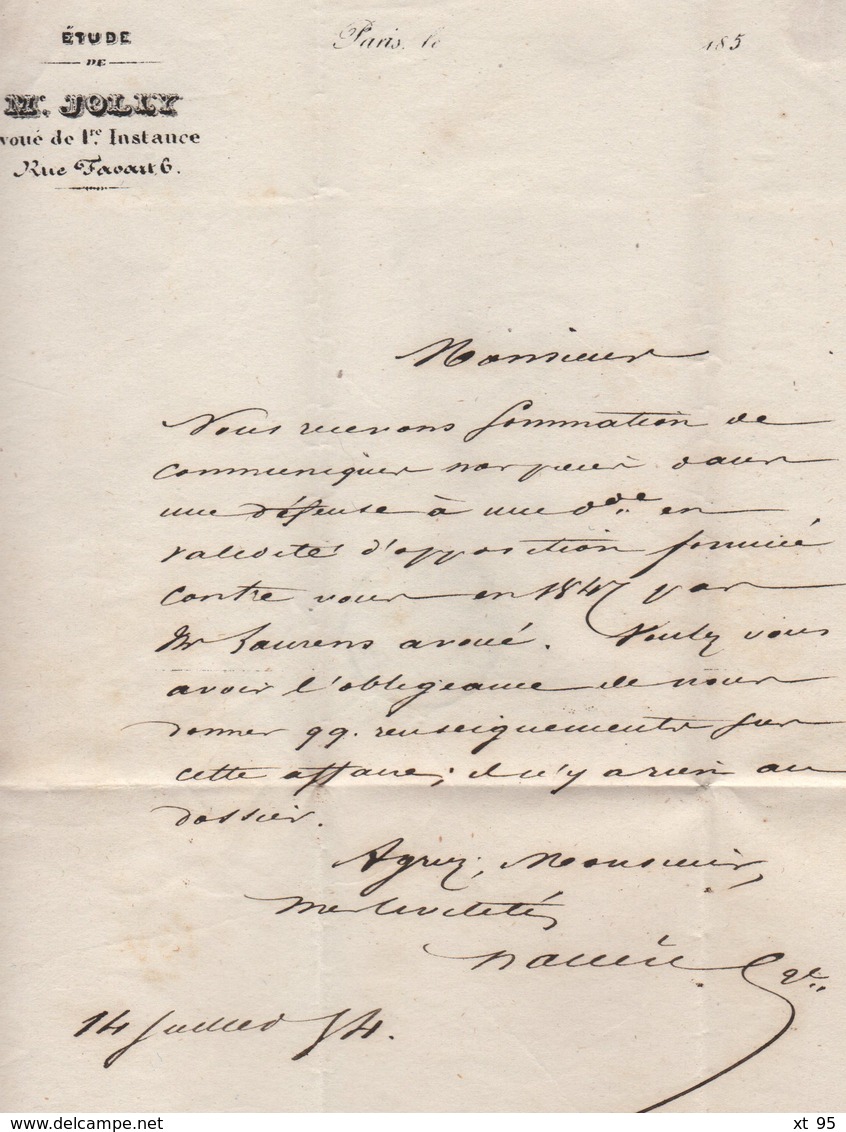 ÉTUDE
DE
Mᵉ. JOLLY
voué de 1ʳᵉ. Instance
Rue Favart, 6.
Paris, le 185
Monsieur
Nous recevons sommation de
communiquer nos pièces dans
une défense à une dᵈᵉ en
validité d'opposition formée
contre vous en 1847 par
Mr Laurens avoué. Voulez vous
avoir l'obligeance de nous
donner qq. renseignements sur
cette affaire; il n'y a rien au
dossier.
Agréez, Monsieur,
mes civilités,
14 Juillet 54.
xt 95